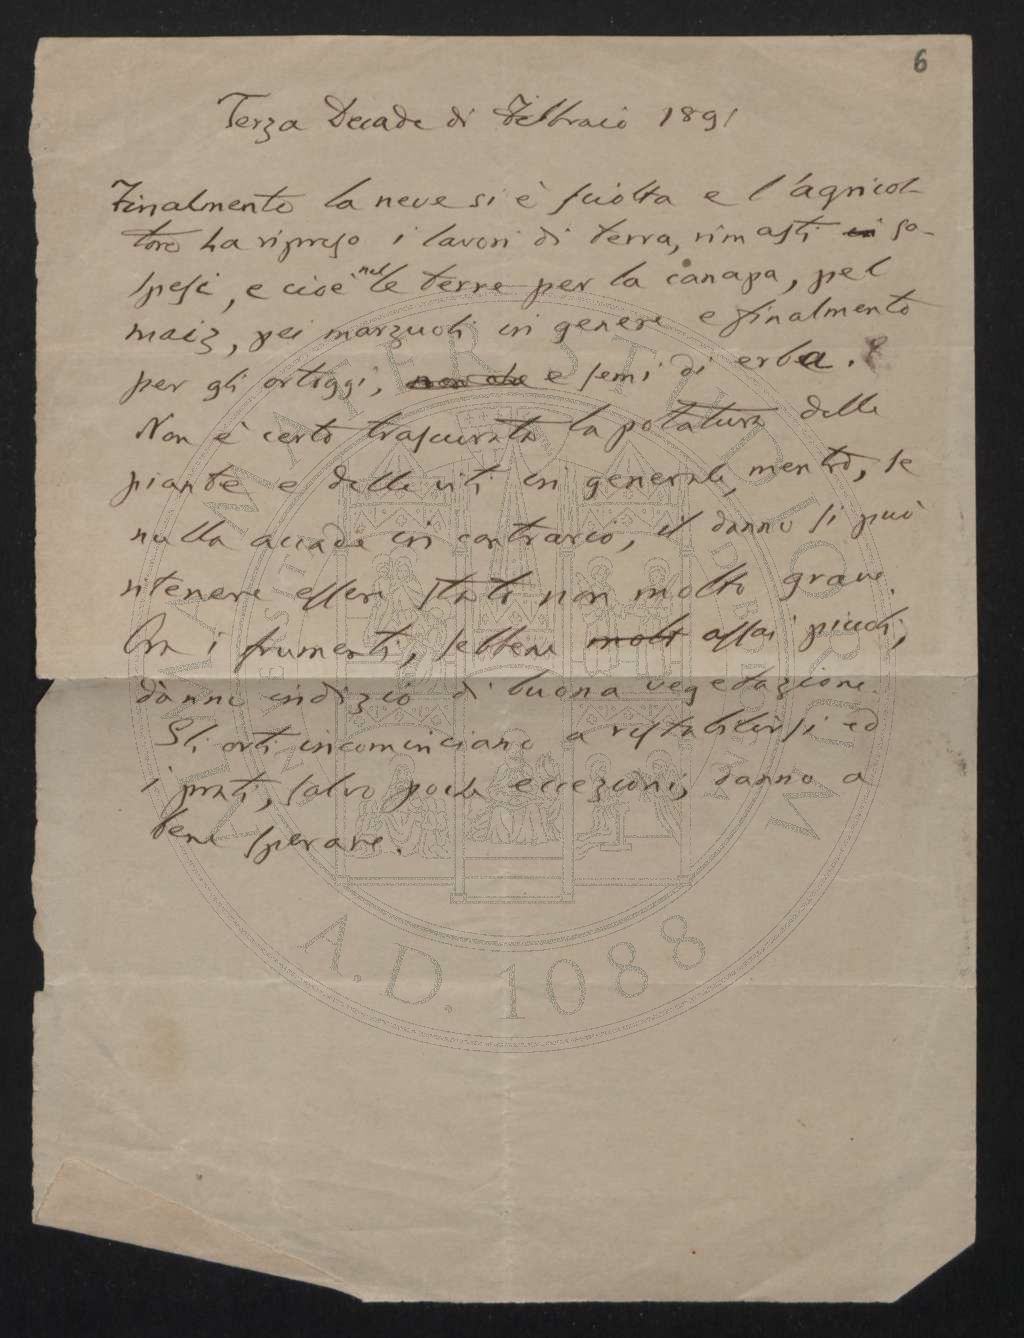 6
Terza Decade di Febbraio 1891
Finalmente la neve si è sciolta e l'agricol-
tore ha ripreso i lavori di terra, rimasti in so-
spesi, e cioè nel le terre per la canapa, pel
maiz, pei marzuoli in genere e finalmente
per gli orteggi, non che e semi di erba.
Non è certo trascurata la potatura delle
piante e delle viti in generale, mentre, se
nulla accade in contrario, il danno si può
ritenere essere stato non molto grave.
Ora i frumenti, sebbene molt assai piccoli,
dànno indizio di buona vegetazione.
Gli orti incominciano a ristabilirsi ed
i prati, salvo poche eccezioni, danno a
bene sperare.
ALMA MATER STUDIORUM
A.D. 1088